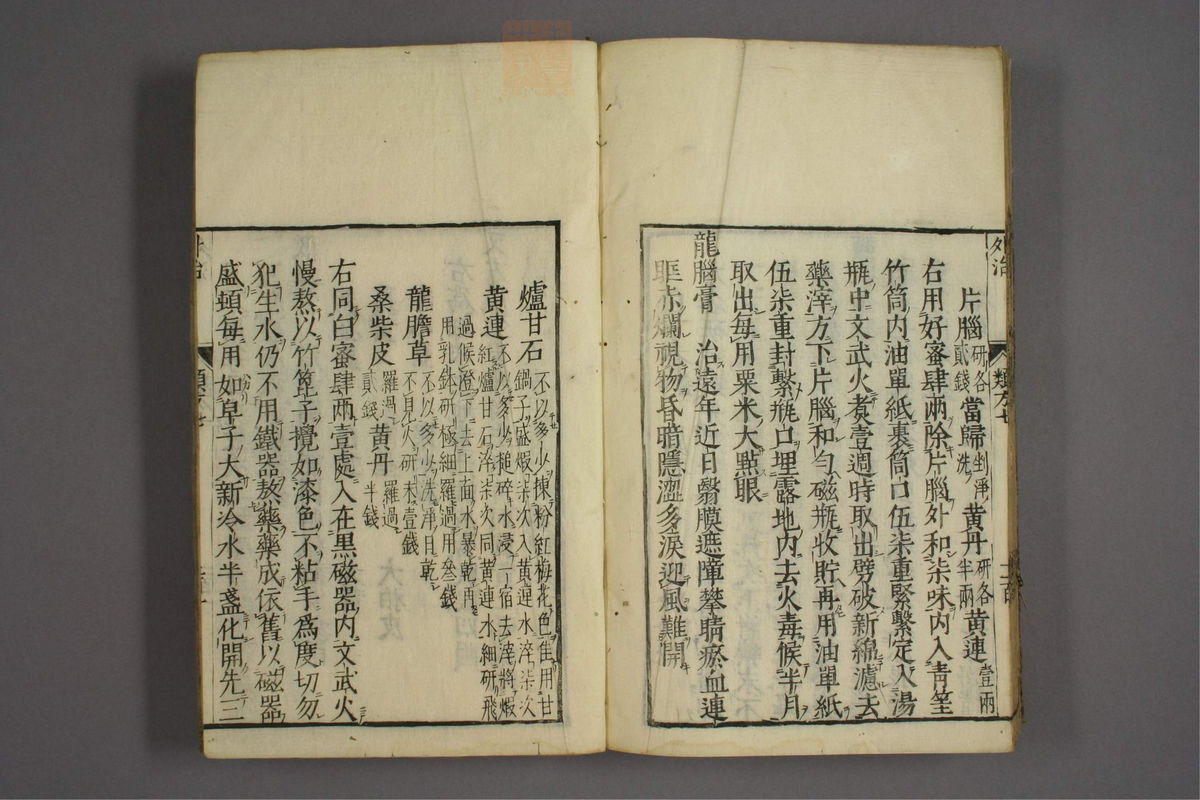 外治　類方七
片腦研各貳錢當歸剉淨洗黄丹研各半兩黄連壹兩
右用好蜜肆兩除片腦外和柒味内入青筀
竹筒内油單紙裹筒口伍柒重緊繫定入湯
瓶中文武火煑壹週時取出劈破新綿濾去
藥滓方下片腦和勻磁瓶收貯再用油單紙
伍柒重封繫瓶口埋露地内去火毒候半月
取出每用粟米大點眼
龍腦膏　治遠年近日翳膜遮障攀睛瘀血連
眶赤爛視物昏暗隱澀多淚迎風難開
爐甘石不以多少揀粉紅梅花色生用甘鍋子盛煅柒次入黄連水淬柒次
黄連不以多少搥碎水浸一宿去滓將煅紅爐甘石淬柒次同黄連水細研飛
過候澄下去上面水暴乾再用乳鉢研極細羅過用叁錢
龍膽草不以多少洗淨日乾不見火研末壹錢
桑柴皮羅過貳錢黄丹羅過半錢
右同白蜜肆兩壹處入在黒磁器内文武火
慢熬以竹篦子攪如漆色不粘手爲度切勿
犯生水仍不用鐵器熬藥藥成依舊以磁器
盛頓每用如皁子大新冷水半盞化開先三